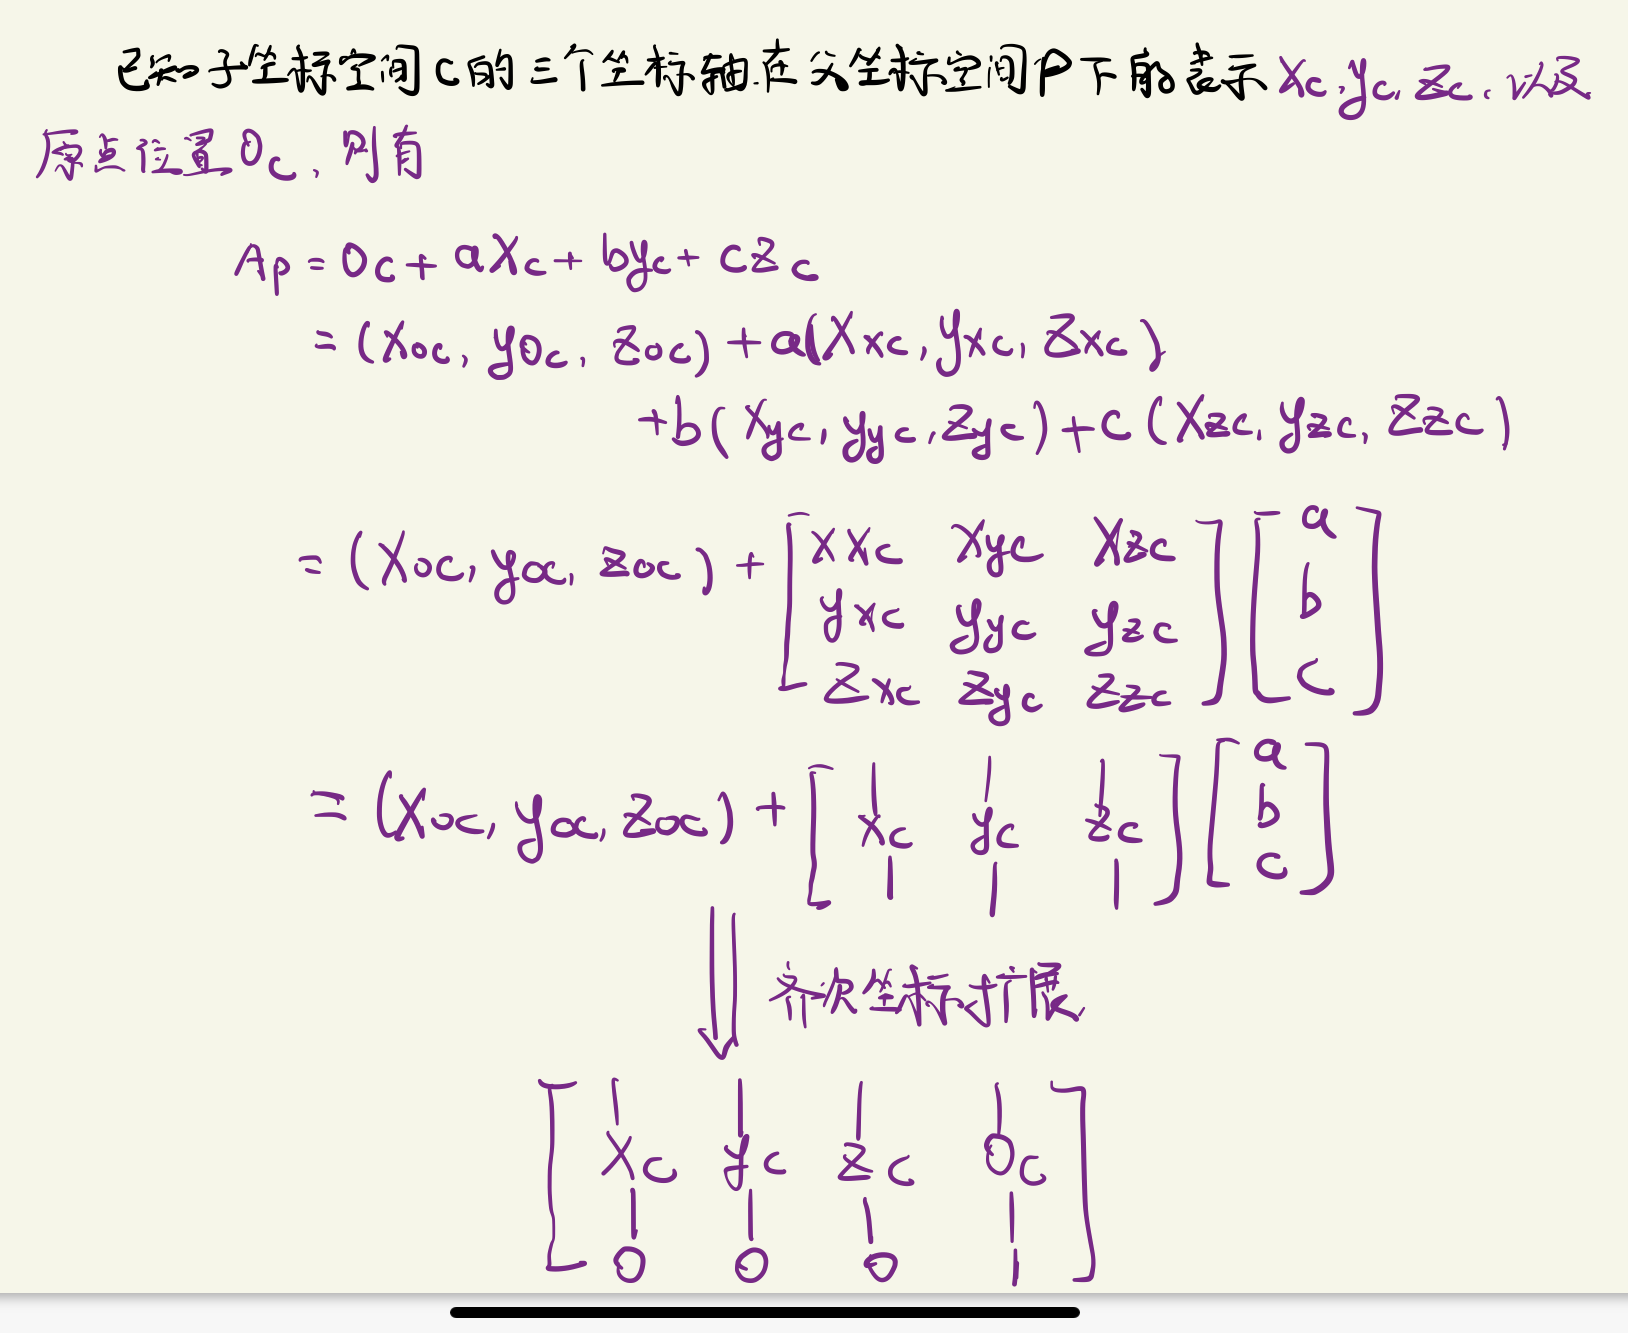 已知子坐标空间C的三个坐标轴在父坐标空间P下的表示Xc,yc,Zc.以及
原点位置Oc,则有
Ap=Oc+aXc+byc+czc
=(Xoc,yoc,Zoc)+a(Xxc,yxc,Zxc)
+b(Xyc,yyc,Zyc)+c(Xzc,yzc,Zzc)
=(Xoc,yoc,Zoc)+[Xxc Xyc Xzc][a
yxc yyc yzc b
Zxc Zyc Zzc] c]
=(Xoc,yoc,Zoc)+[| | | ][a
xc yc zc b
| | | ] c]
⇓ 齐次坐标扩展
[| | | |
Xc yc zc Oc
| | | |
0 0 0 1]